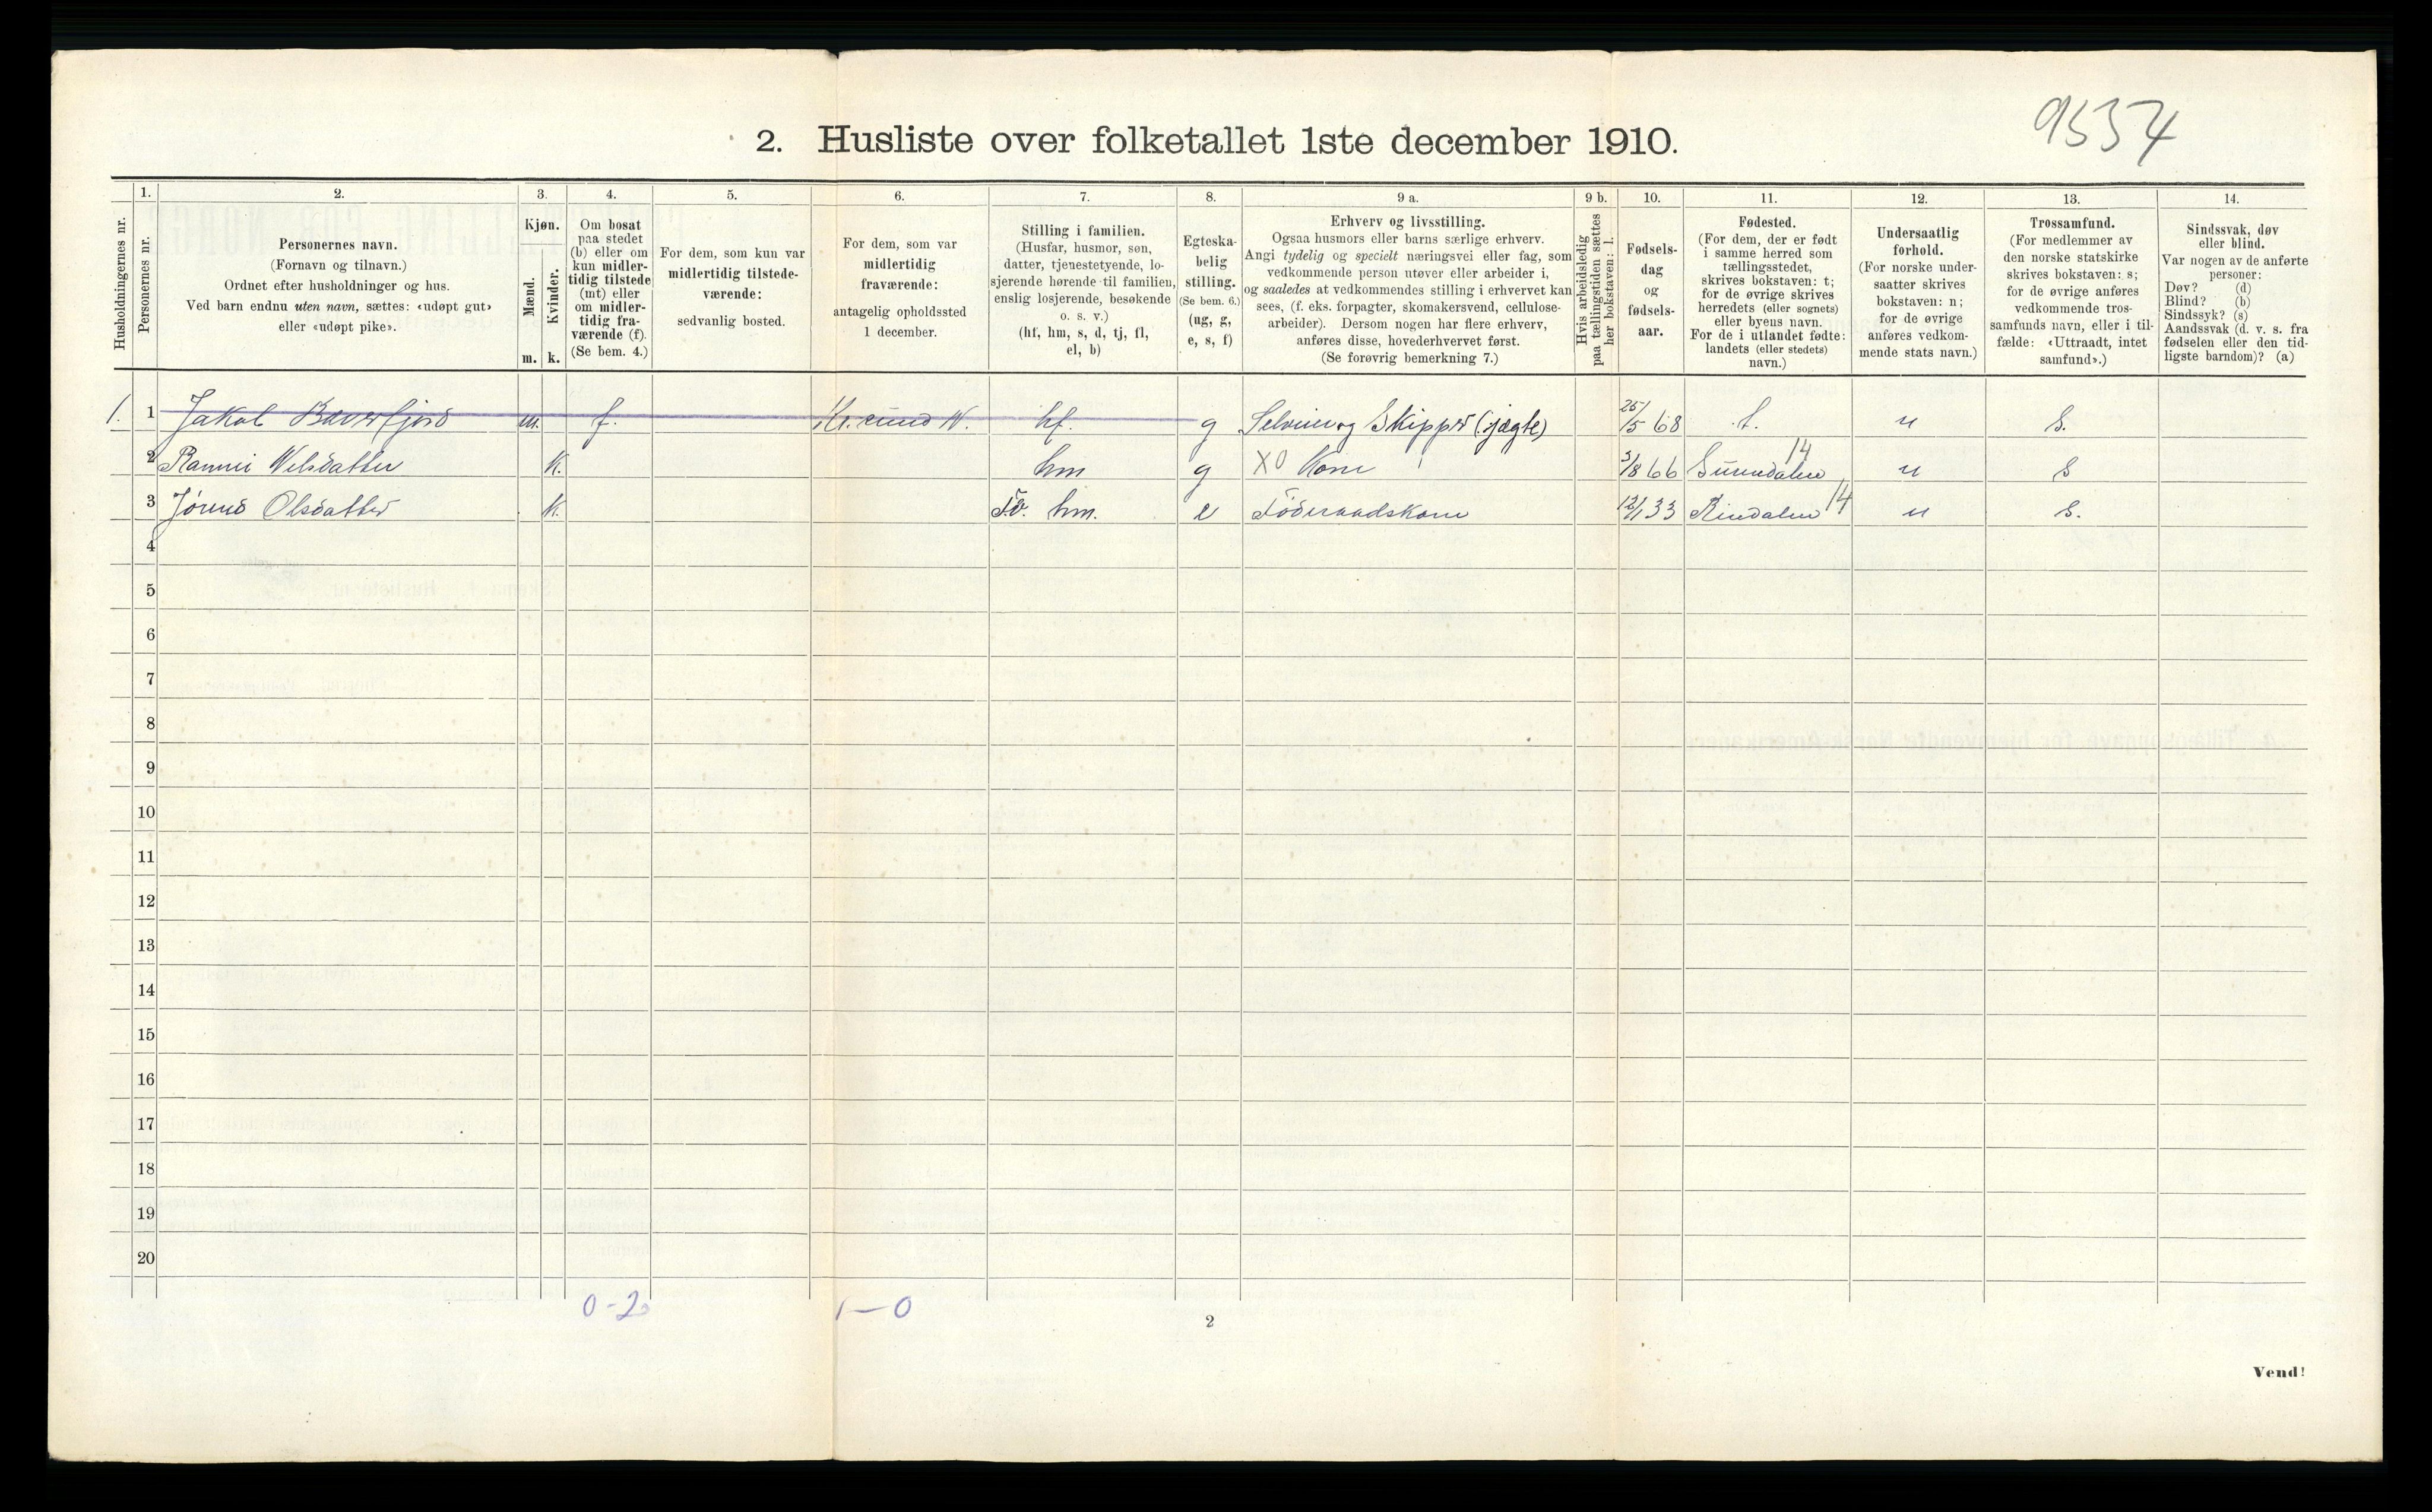 9537
2. Husliste over folketallet 1ste december 1910.
1. 2. 3. 4. 5. 6. 7. 8. 9 a. 9 b. 10. 11. 12. 13. 14.
Husholdningernes nr.
Personernes nr.
Personernes navn.
(Fornavn og tilnavn.)
Ordnet efter husholdninger og hus.
Ved barn endnu uten navn, sættes: «udøpt gut»
eller «udøpt pike».
Kjøn.
Mænd.
Kvinder.
m. k.
Om bosat
paa stedet
(b) eller om
kun midler-
tidig tilstede
(mt) eller
om midler-
tidig fra-
værende (f).
(Se bem. 4.)
For dem, som kun var
midlertidig tilstede-
værende:
sedvanlig bosted.
For dem, som var
midlertidig
fraværende:
antagelig opholdssted
1 december.
Stilling i familien.
(Husfar, husmor, søn,
datter, tjenestetyende, lo-
sjerende hørende til familien,
enslig losjerende, besøkende
o. s. v.)
(hf, hm, s, d, tj, fl,
el, b)
Egteska-
belig
stilling.
(Se bem. 6.)
(ug, g,
e, s, f)
Erhverv og livsstilling.
Ogsaa husmors eller barns særlige erhverv.
Angi tydelig og specielt næringsvei eller fag, som
vedkommende person utøver eller arbeider i,
og saaledes at vedkommendes stilling i erhvervet kan
sees, (f. eks. forpagter, skomakersvend, cellulose-
arbeider). Dersom nogen har flere erhverv,
anføres disse, hovederhvervet først.
(Se forøvrig bemerkning 7.)
Hvis arbeidsledig
paa tællingstiden sættes
her bokstaven: l.
Fødsels-
dag
og
fødsels-
aar.
Fødested.
(For dem, der er født
i samme herred som
tællingsstedet,
skrives bokstaven: t;
for de øvrige skrives
herredets (eller sognets)
eller byens navn.
For de i utlandet fødte:
landets (eller stedets)
navn.)
Undersaatlig
forhold.
(For norske under-
saatter skrives
bokstaven: n;
for de øvrige
anføres vedkom-
mende stats navn.)
Trossamfund.
(For medlemmer av
den norske statskirke
skrives bokstaven: s;
for de øvrige anføres
vedkommende tros-
samfunds navn, eller i til-
fælde: «Uttraadt, intet
samfund».)
Sindssvak, døv
eller blind.
Var nogen av de anførte
personer:
Døv? (d)
Blind? (b)
Sindssyk? (s)
Aandssvak (d. v. s. fra
fødselen eller den tid-
ligste barndom)? (a)
1. 1 Jakob Bæverfjord m. f. Kr.sund N. hf. g Selveier og Skipper (jægte) 25/5 68 t. n S.
2 Ranni Nilsdatter k. hm g X0 Kone 3/8 66 Surendalen 14 n S
3 Jørund Olsdatter k. Fø. hm. e Föderaadskone 12/1 33 Rindalen 14 n S.
4
5
6
7
8
9
10
11
12
13
14
15
16
17
18
19
20
0-2 1-0
2
Vend!